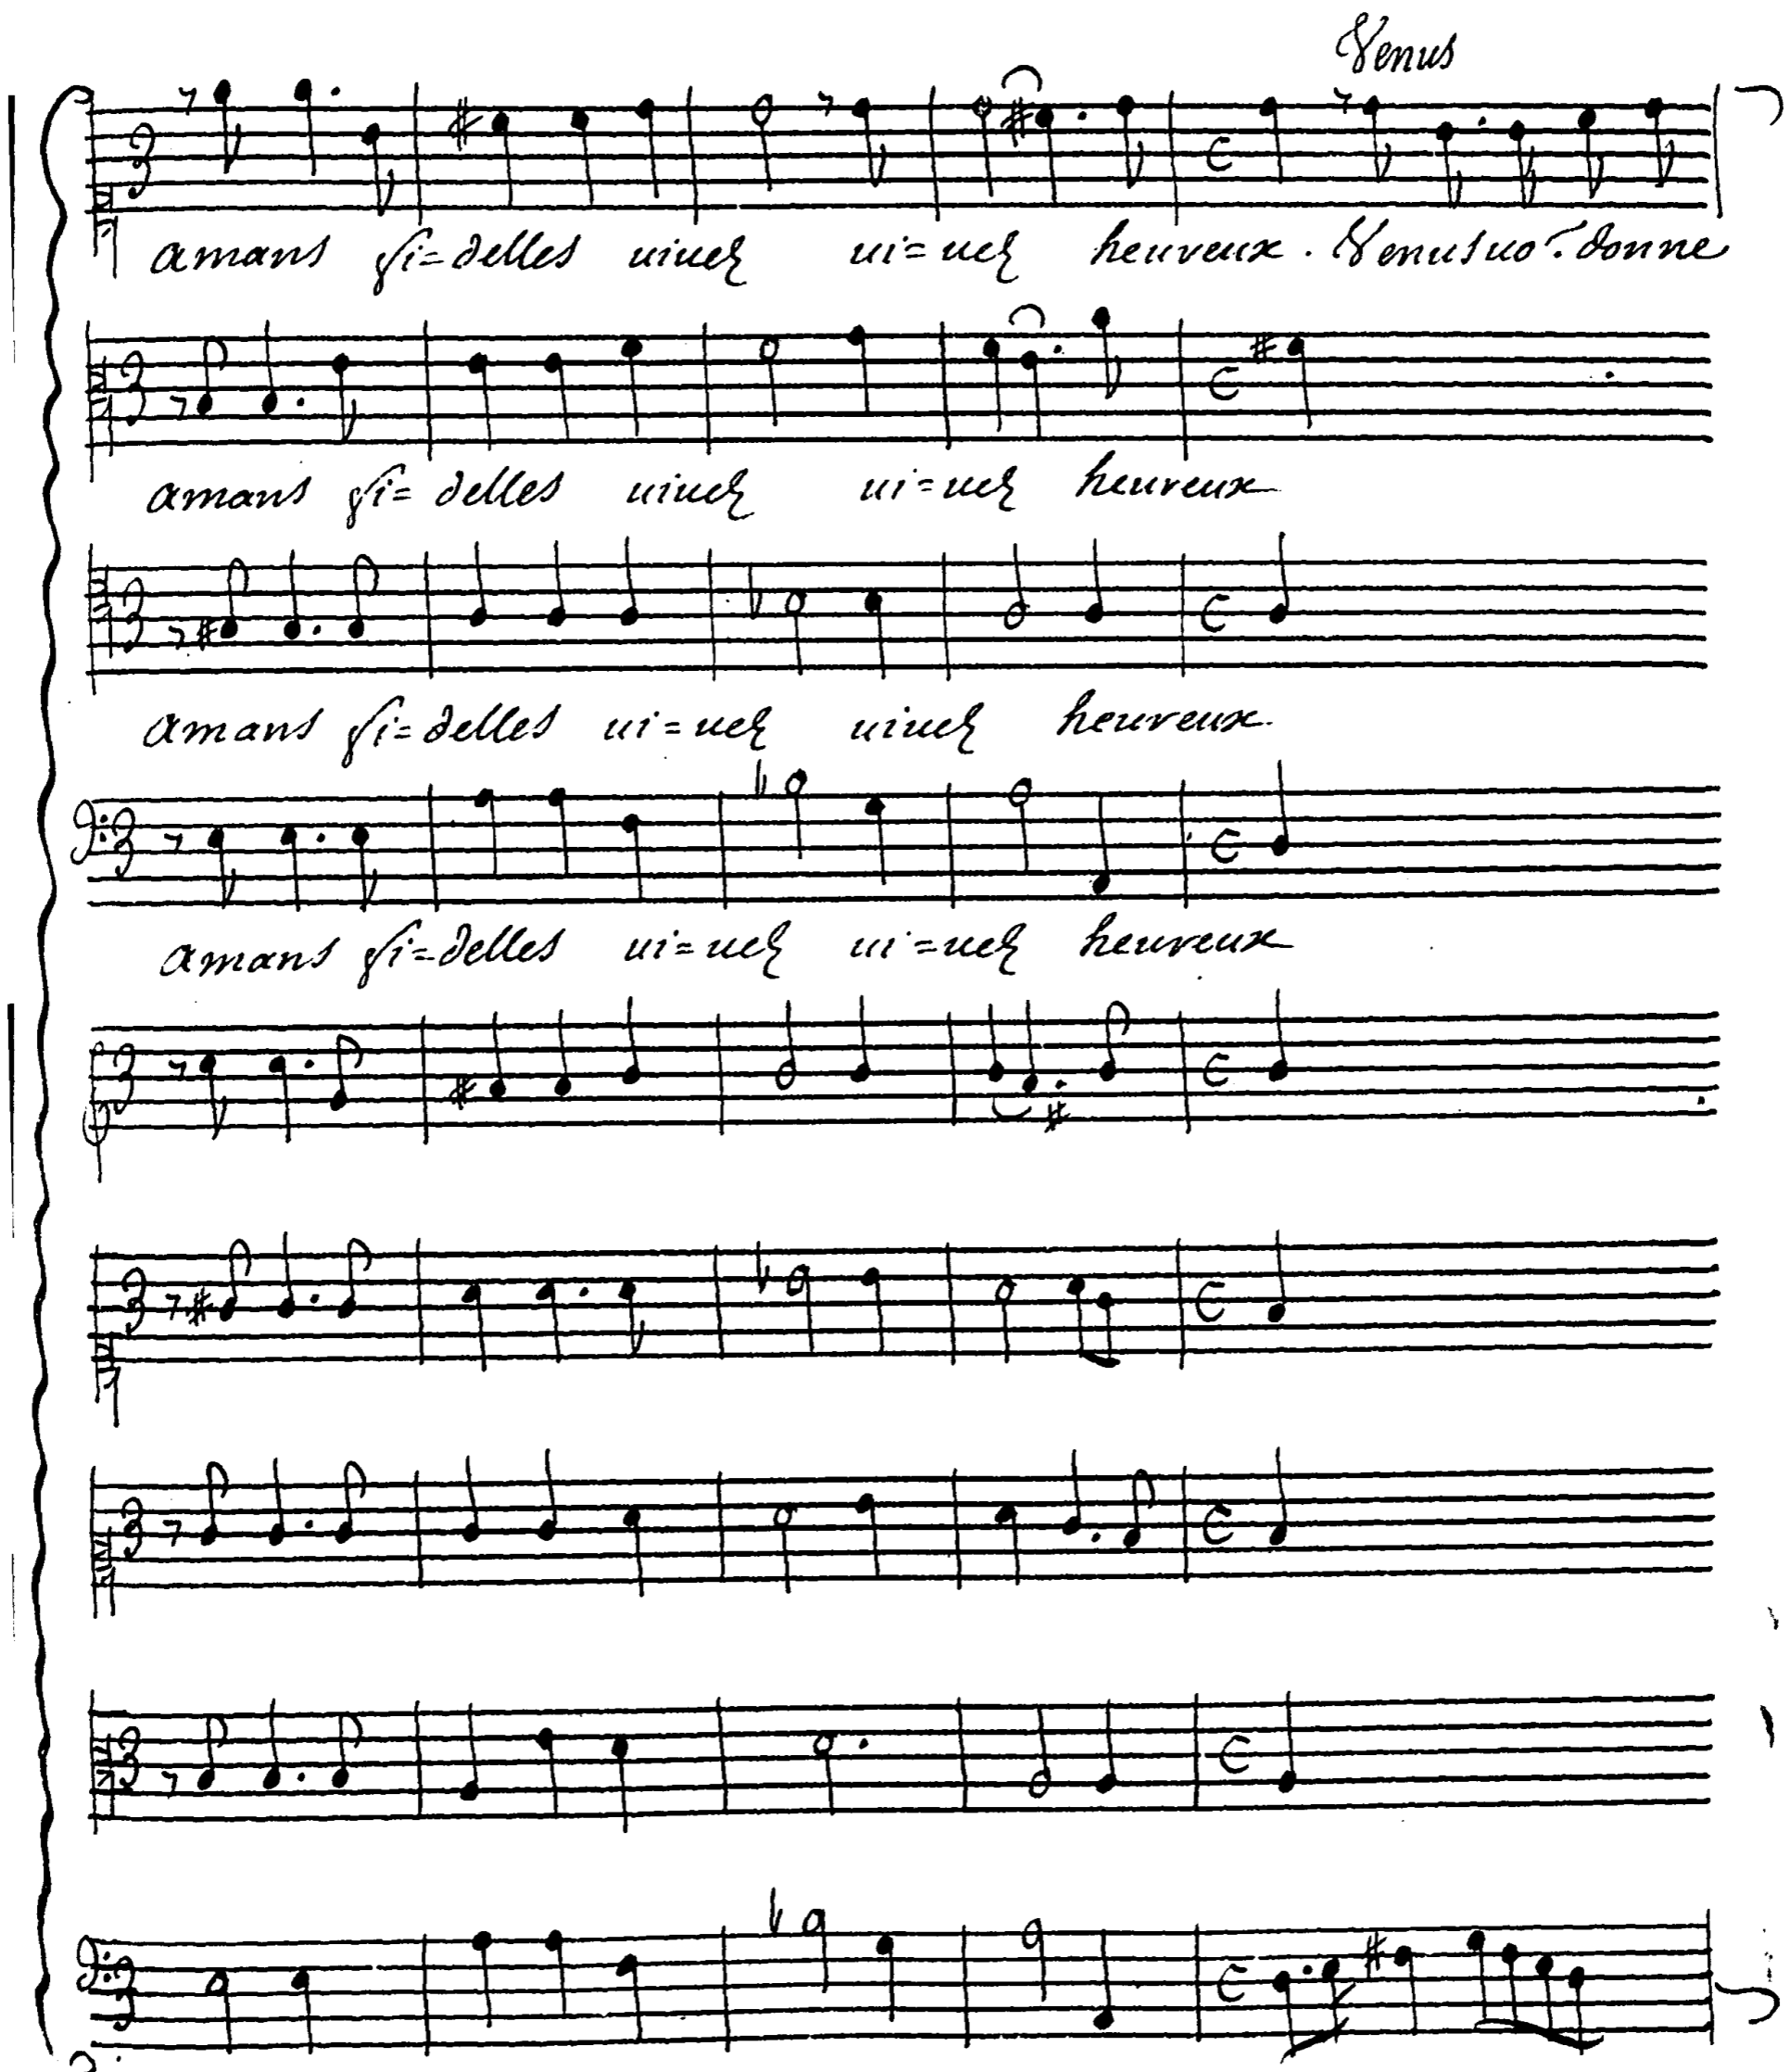 Venus
amans fi=delles uiuez ui=uez heureux. Venus uo.s donne
amans fi=delles uiuez ui=uez heureux
amans fi=delles ui=uez uiuez heureux.
amans fi=delles ui=uez ui=uez heureux